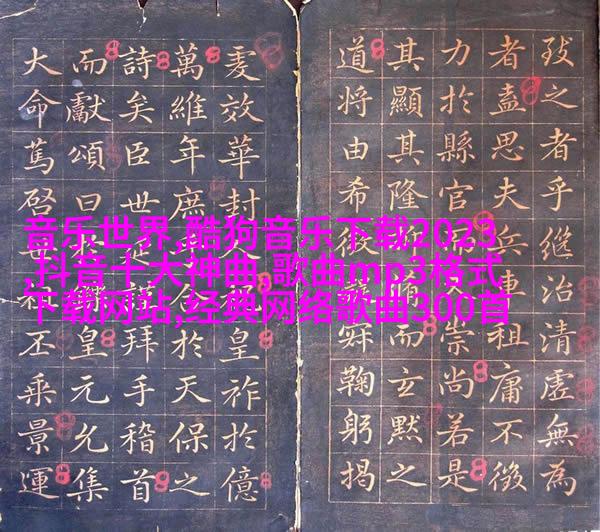 者乎繼治清虛無為
者盍思夫兵連租庸不徵
力於縣官崇尚若是
其顯其隆而玄默之
道將由希鞠躬揭
夐效華封皇祚於億
萬維年庶於天保之
詩矣臣世拜手稽首
而獻頌曰皇元允集
大命篤啓丕乘景運
音乐世界,酷狗音乐下载2023
,抖音十大神曲,歌曲mp3格式
下载网站,经典网络歌曲300首